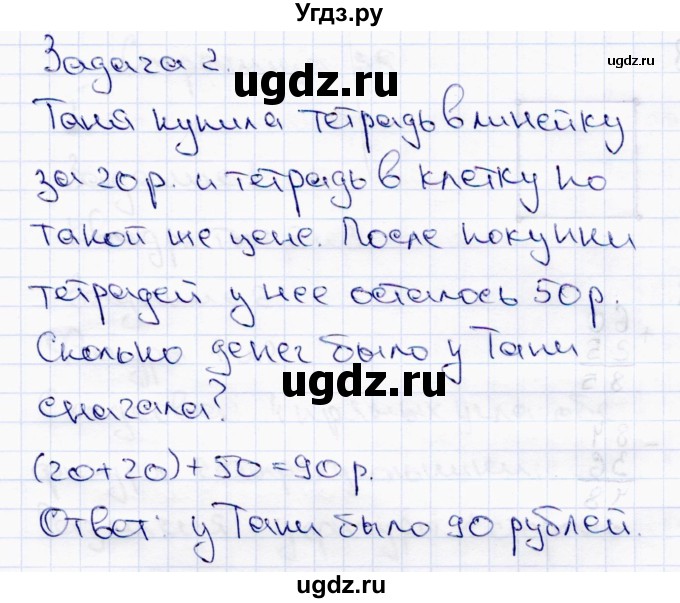 Угдз.ру
Задача 2.
ugdz.ru
Таня купила тетрадь в линейку
за 20 р. и тетрадь в клетку по
такой же цене. После покупки
тетрадей у нее осталось 50 р.
Сколько денег было у Тани
ugdz.ru
сначала?
(20+20)+50=90 р.
Ответ: у Тани было 90 рублей.
ugdz.ru